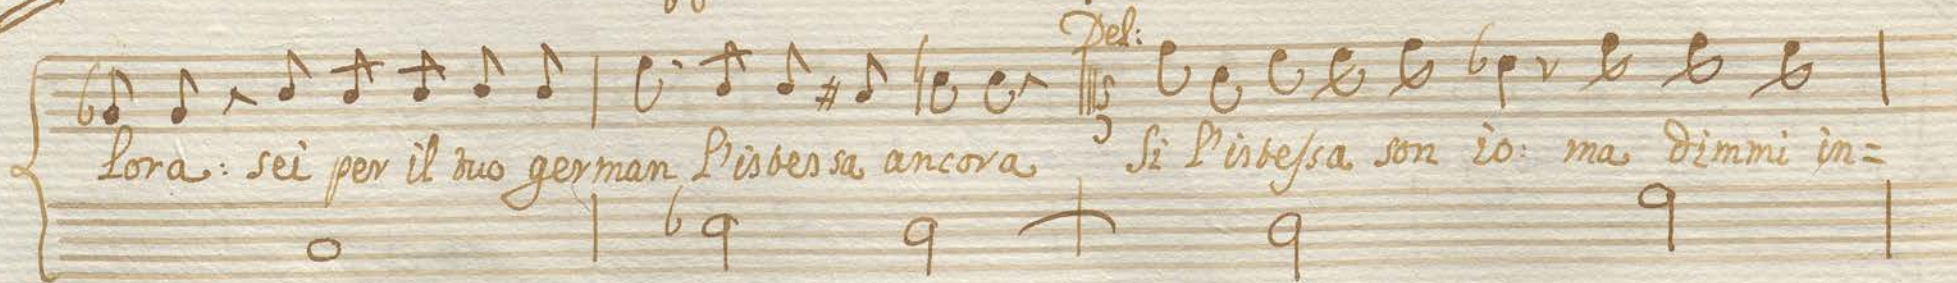 Del:
lora: sei per il tuo german l'istessa ancora Si l'istessa son io: ma dimmi in=